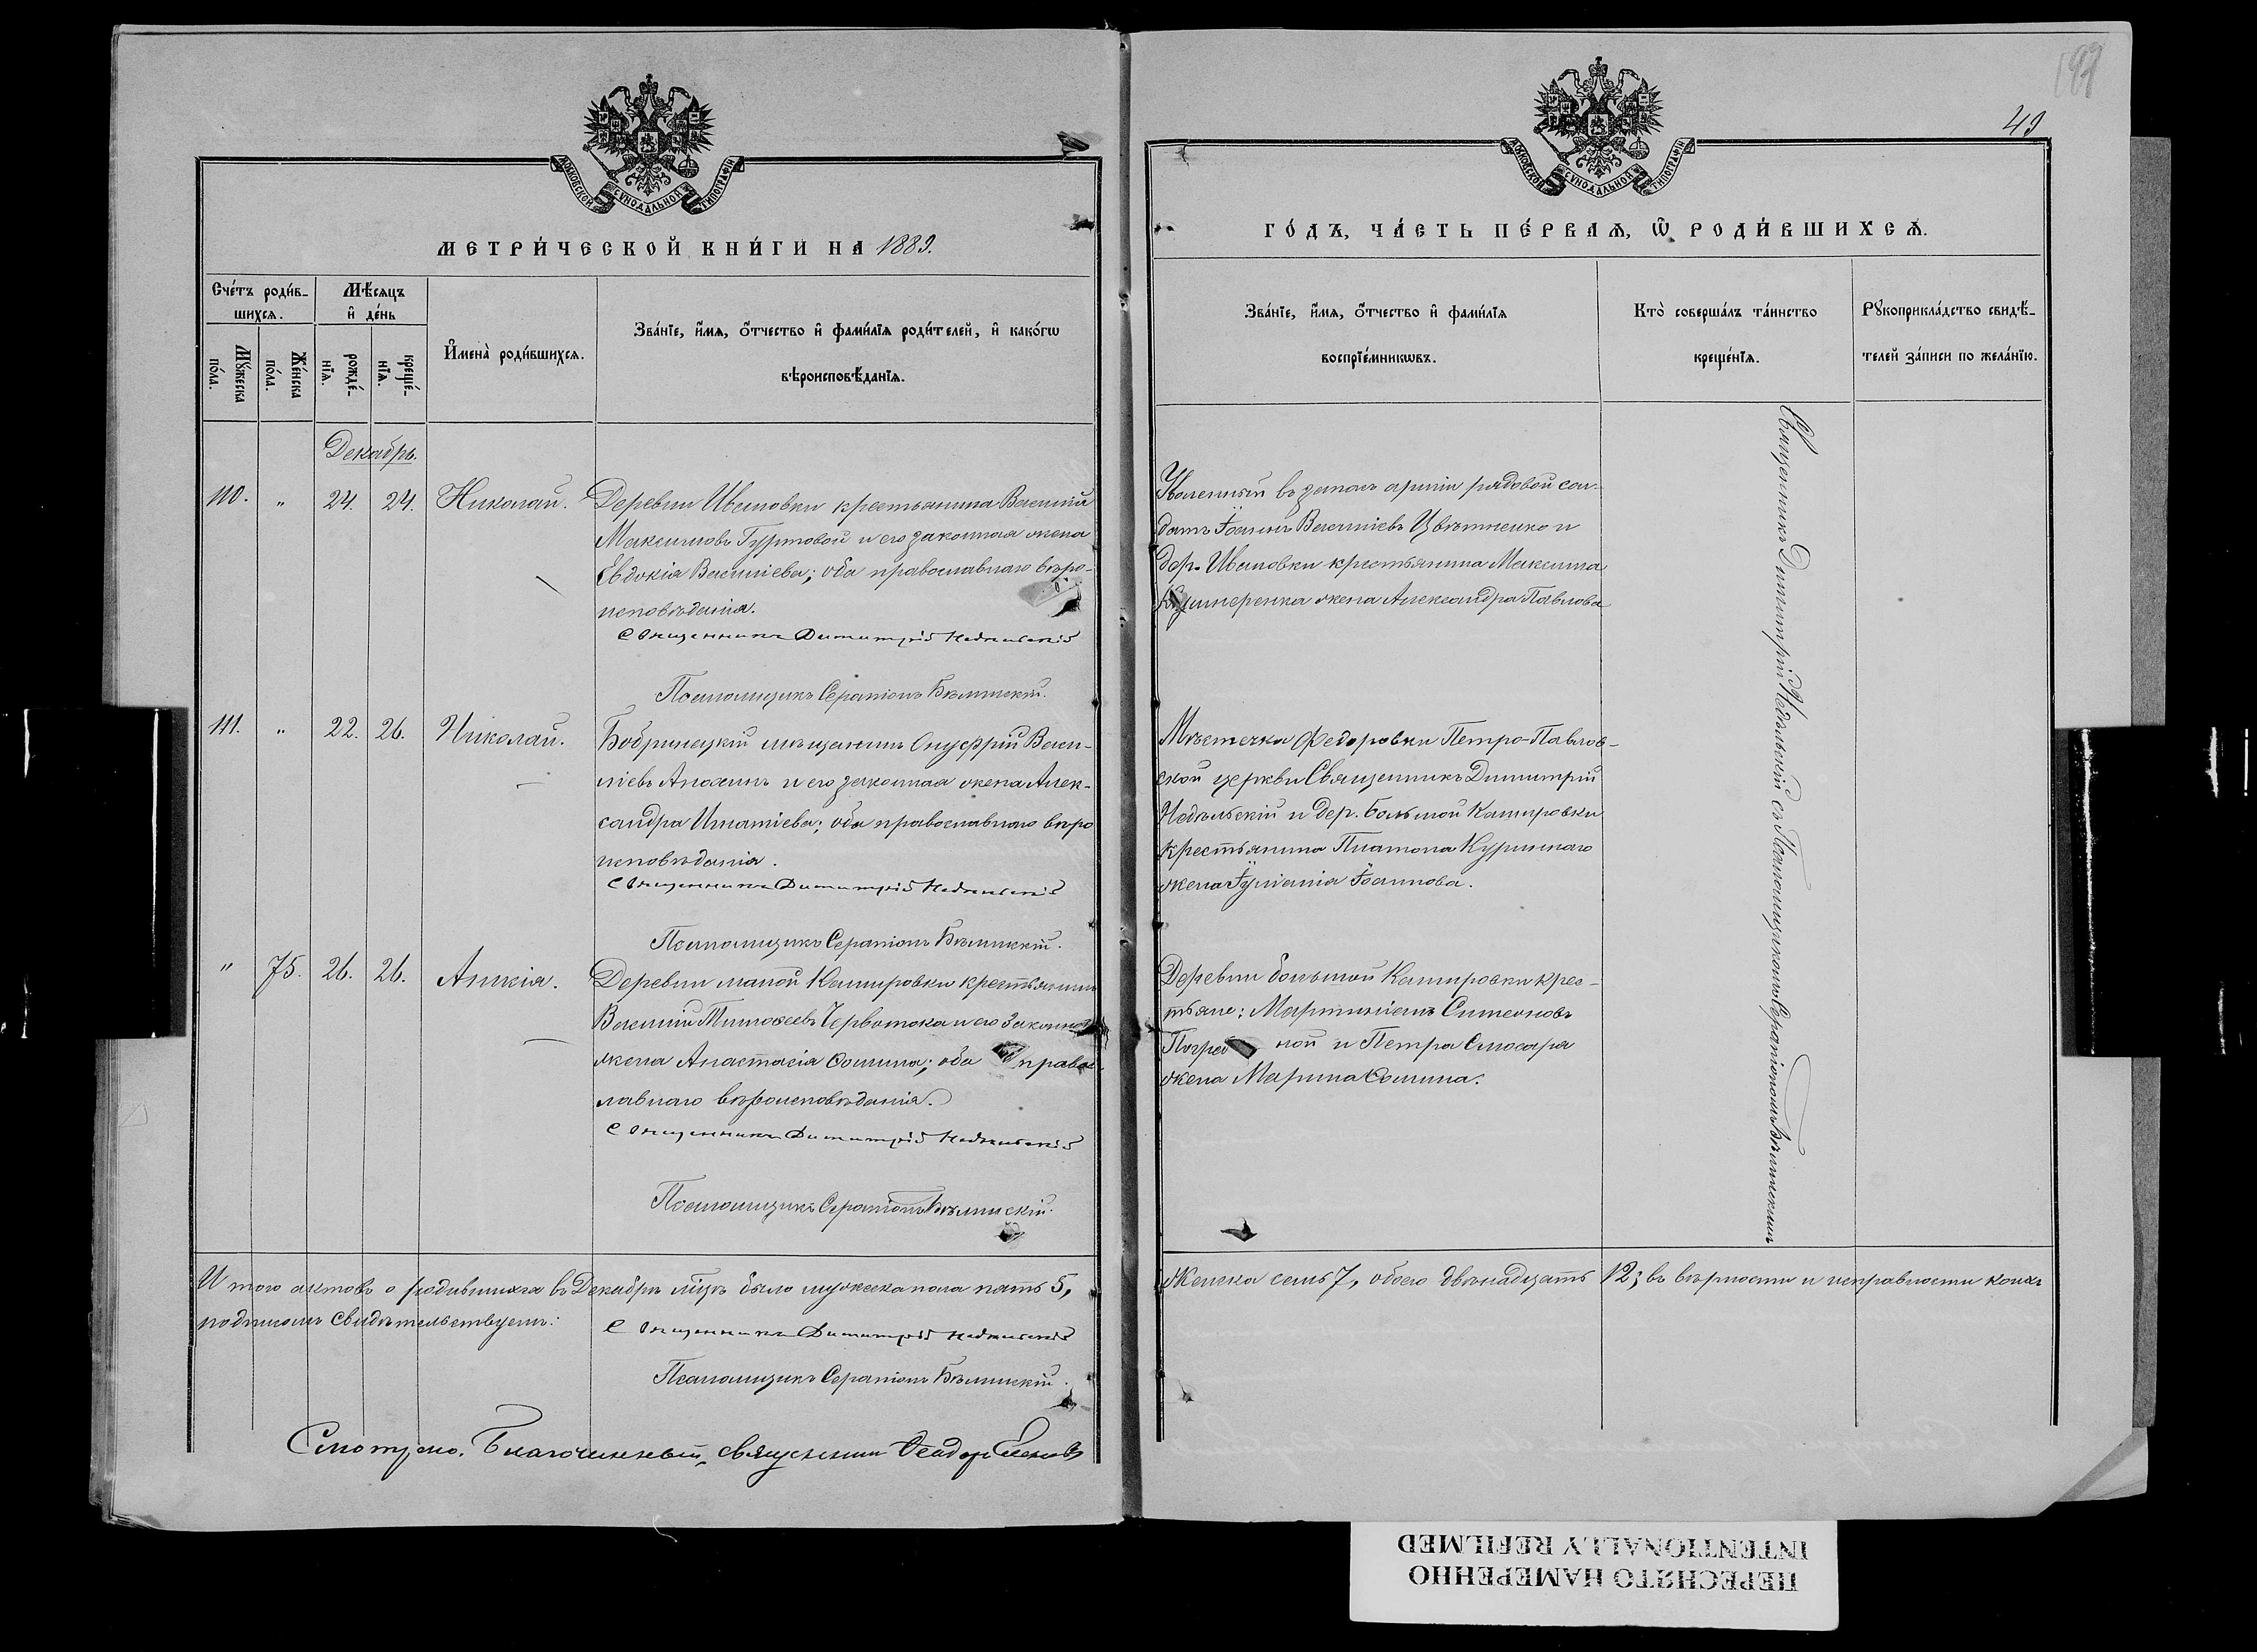 199
49
МОСКОВСКОЙ СѴНОДАЛЬНОЙ ТИПОГРАФІИ
МЕТРИ́ЧЕСКОЙ КНИ́ГИ НА 1889.
Сче́тъ роди́в-
шихсѧ.
Мꙋ́жеска
по́ла.
Же́нска
по́ла.
Мѣ́сѧцъ
и҆ де́нь
рожде́-
нїѧ.
креще́-
нїѧ.
И҆мена̀ роди́вшихсѧ.
Зва́нїе, и҆́мѧ, ѻ҆́тчество и҆ фами́лїѧ роди́телей, и҆ како́гѡ
вѣроисповѣ́данїѧ.
Декабрь.
110. " 24. 24. Николай.
Деревни Ивановки крестьянина Василій
Максимовъ Гуртовой и его законная жена
Евдокія Василіева; оба православнаго вѣро-
исповѣданія.
Священникъ Димитрій Недѣльскій
Псаломщикъ Серапіонъ Бѣлинскій.
111. " 22. 26. Николай.
Бобринецкій мѣщанинъ Онуфрій Васи-
ліевъ Анохинъ и его законная жена Алек-
сандра Игнатіева; оба православнаго вѣро
исповѣданія.
Священникъ Димитрій Недѣльскій
Псаломщикъ Серапіонъ Бѣлинскій.
" 75. 26. 26. Анисія.
Деревни малой Камировки крестьянин
Василій Тимоѳеевъ Червотока и его законная
жена Анастасія Ѳомина; оба правос-
лавнаго вѣроисповѣданія.
Священникъ Димитрій Недѣльскій
Псаломщикъ Серапіонъ Бѣлинскій.
Итого актовъ о родившихся въ Декабрѣ мѣсяцѣ было мужеска пола пять 5,
подписомъ свидѣтельствуемъ:
Священникъ Димитрій Недѣльскій
Псаломщикъ Серапіонъ Бѣлинскій.
Смотрено. Благочинный, священникъ Ѳеодоръ
МОСКОВСКОЙ СѴНОДАЛЬНОЙ ТИПОГРАФІИ
ГО́ДЪ, ЧА́СТЬ ПЕ́РВАѦ, Ѽ РОДИ́ВШИХСѦ.
Зва́нїе, и҆́мѧ, ѻ҆́тчество и҆ фами́лїѧ
воспрїе́мникѡвъ.
Кто̀ соверша́лъ та́инство
креще́нїѧ.
Рꙋкоприкла́дство свидѣ́-
телей за́писи по жела́нїю.
Уволенный въ запасъ арміи рядовой сол-
датъ Іоаннъ Василіевъ Цвѣтненко и
дер. Ивановки крестьянина Максима
жена Александра Павлова
Мѣстечка Федоровки Петро-Павлов-
ской церкви Священникъ Димитрій
Недѣльскій и дер. Большой Камировки
крестьянина Платона Куринного
жена Іуліанія Іоаннова.
Деревни большой Камировки крес-
тьяне: Мартиніанъ Симеоновъ
Погреб ной и Петра Слюсаря
жена Марина Ѳомина.
Священникъ Димитрій Недѣльскій съ Псаломщикомъ Серапіономъ Бѣлинскимъ
женска семь 7, обоего двѣнадцать 12; въ вѣрности и исправности коихъ
ПЕРЕСНЯТО НАМЕРЕННО
INTENTIONALLY REFILMED